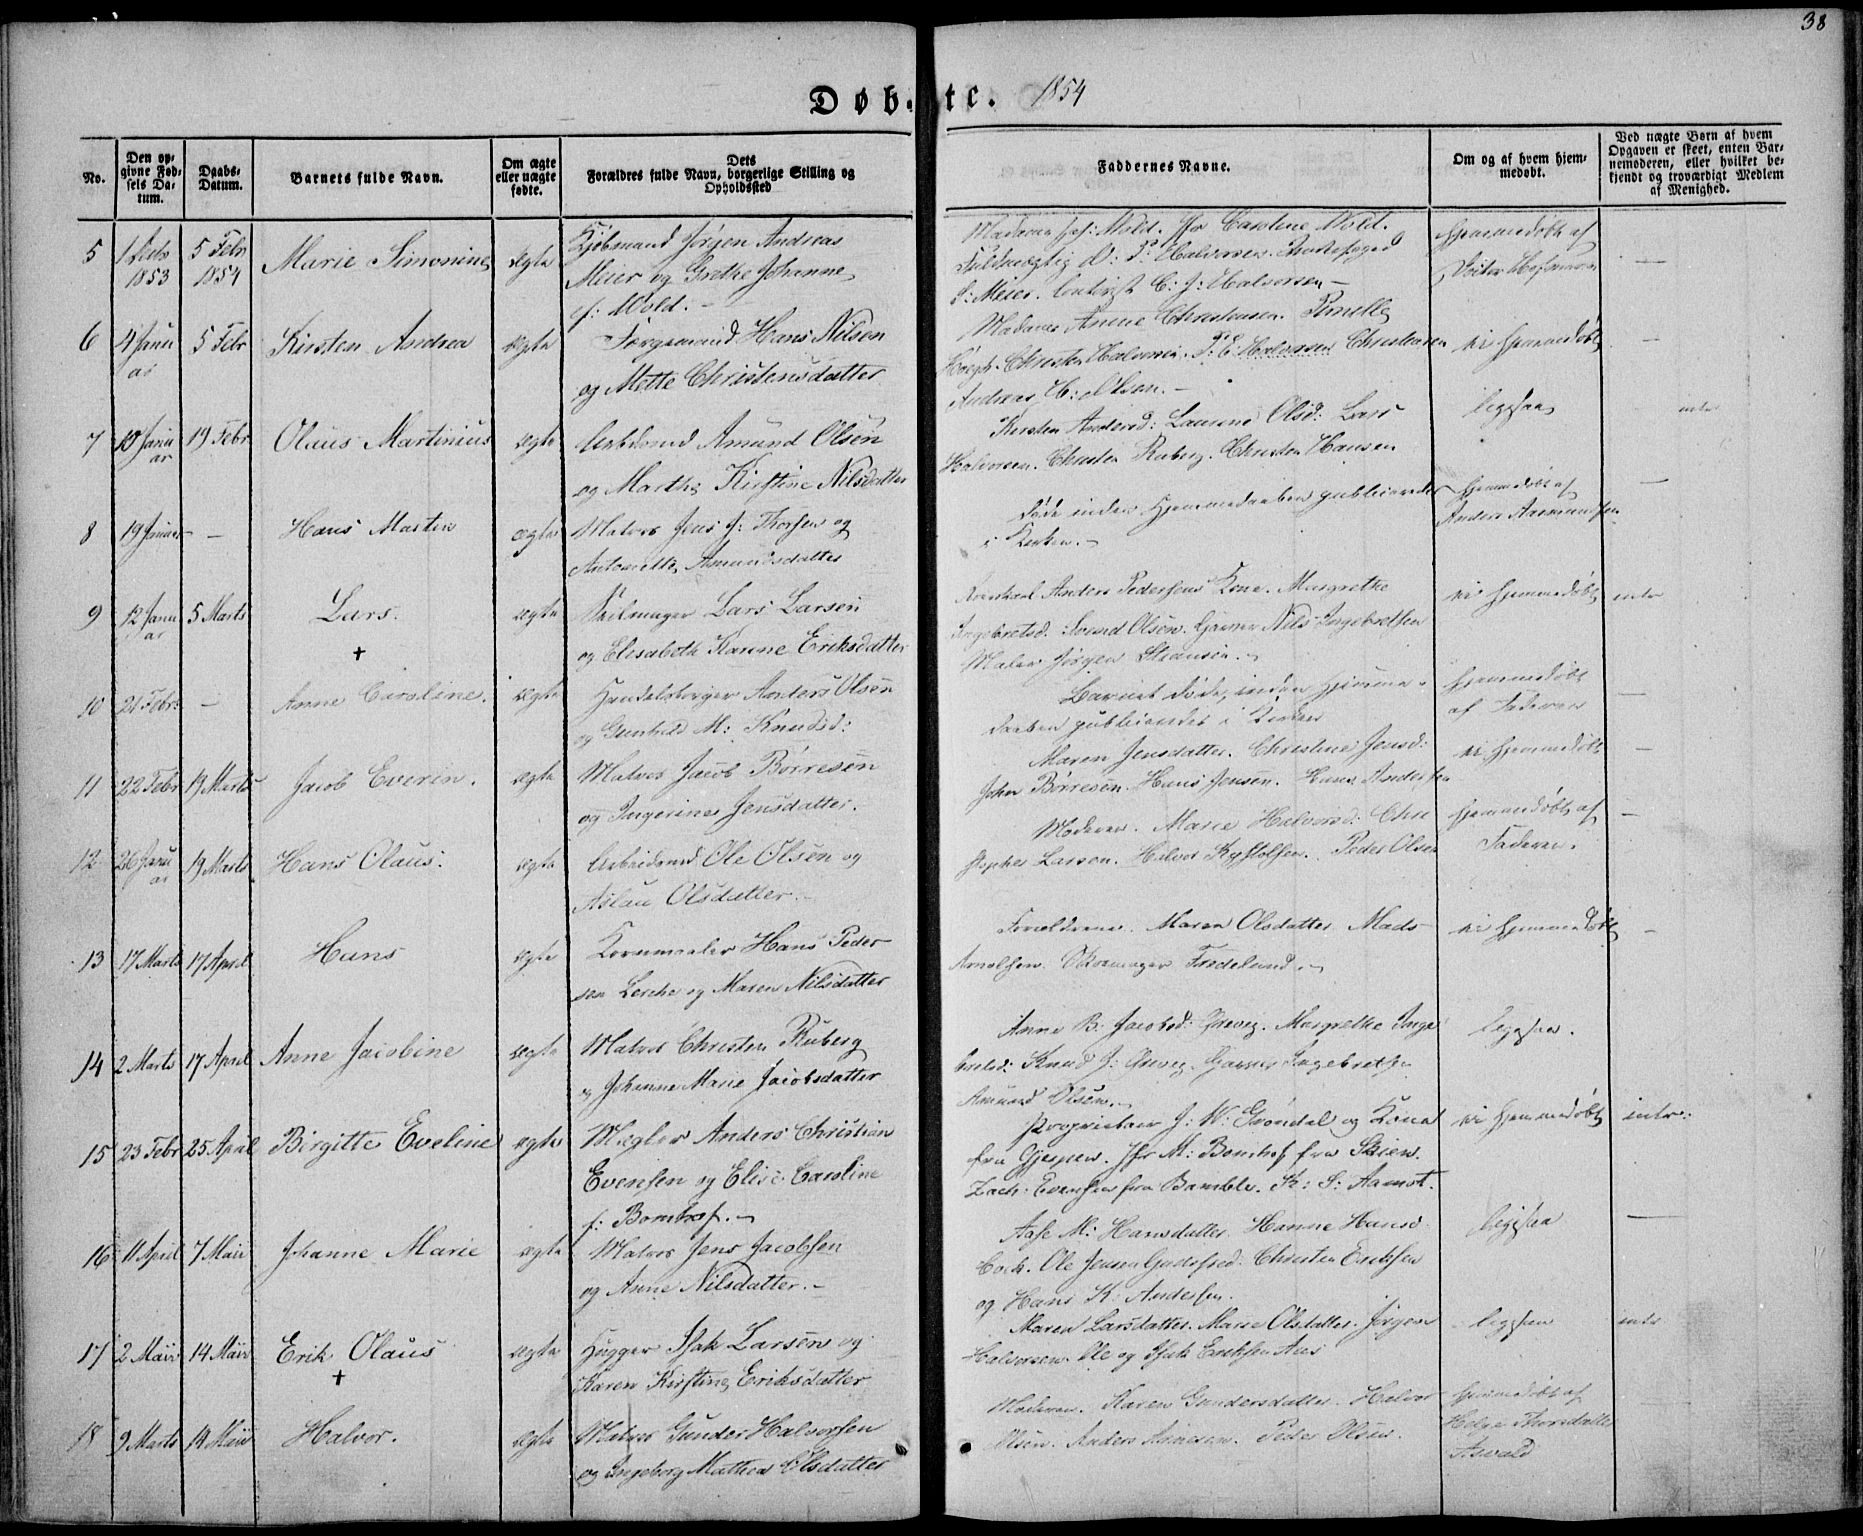 38
Døbte. 1854
No.
Den opgivne Fødsels Datum.
Daabs-Datum.
Barnets fulde Navn.
Om ægte eller uægte fødte.
Dets Forældres fulde Navn, borgerlige Stilling og Opholdssted
Faddernes Navne.
Om og af hvem hjemmedøbt.
Ved uægte Børn af hvem Opgaven er skeet, enten Barnemoderen, eller hvilket bekjendt og troværdigt Medlem af Menighed.
5 1 1853 5 Febr 1854 Marie Simonine ægte Kjøbmand Jørgen Andreas
Meier og Grethe Johanne
f: Wold. –
Wold. Jfr Caroline Wold.
Fuldmægtig P: Halvorsen.
S: Meier. C: J: Halvorsen –
Hjemmedøbt af
6 4 Januar 5 Febr Kirsten Andrea ægte Hans Nilsen
og Mette Christensdatter
Madame Anne Christensen. Pernille
Christen Halvorsen. P: C: Halvorsen Christensen
Andreas H: Olsen. –
ei hjemmedøbt
7 10 Januar 19 Febr Olaus Martinius ægte Arbdsmd Amund Olsen
og Marthe Kirstine Nilsdatter
Kirsten Andersd: Laurine Olsd: Lars
Halvorsen. Christen Ruberg. Christen Hansen
ligesaa
8 19 Januar – Hans Martin ægte Matros Jens J: Thorsen og
Antonette Amundsdatter
Døde inden Hjemmedaaben publiceredes
i Kirken. –
Hjemmedøbt af
Anders
9 12 Januar 5 Marts Lars. ægte Seilmager Lars Larsen
+
og Elisabeth Karine Eriksdatter
Anders Pedersens Kone. Margrethe
Ingebretsd. Svend Olsen. Nils Ingebretsen
Maler Jørgen
ei hjemmedøbt intr
10 21 Febr: – Anne Caroline. ægte Handelsborger Anders Olsen
og Gunhild M: Knudsd:
Barnet døde, inden Hjemme-
daaben publiceredes i Kirken
Hjemmedøbt
af Faderen
11 22 Febr 19 Marts Jacob Everin. ægte Matros Jacob Børresen
og Ingerine Jensdatter.
Maren Jensdatter. Christine Jensd:
John Børresen. Hans Jensen. Hans Andersen
ei hjemmedøbt
12 26 Januar 19 Marts Hans Olaus. ægte Arbeidsmd Ole Olsen og
Aslau Olsdatter. –
Moderen. Marie Halvorsd: Chri
stopher Larsen. Halvor Peder Olsen
Hjemmedøbt af
Faderen.
13 17 Marts 17 April Hans ægte Kornmaaler Hans Peder
sen Lerche og Maren Nilsdatter
Forældrene. Maren Olsdatter Mads
Arnolsen.
ei hjemmedøbt
14 2 Marts 17 April Anne Jacobine ægte Matros Christen Ruberg
og Johanne Marie Jacobsdatter
Anne B: Jacobsd: Margrethe Inge
bretsd: Knud J: Ingebretsen
Amund Olsen. –
ligesaa.
15 23 Febr 25 April Birgitte Eveline ægte Mægler Anders Christian
Evensen og Elise Caroline
f: Bomhof. –
Proprietær J: W: Grøndal og Kone
fra Gjerpen. Jfr M: Bomhof fra Skien.
Zach: Evensen fra Bamble. K: S: Aamot.
ei hjemmedøbt intr:
16 11 April 7 Mai Johanne Marie ægte Matros Jens Jacobsen
og Anne Nilsdatter. –
Aase M: Hansdatter. Hanne Hansd
Ole Jensen Christen Eriksen
og Hans K: Andersen.
ligesaa
17 2 Mai 14 Mai Erik Olaus ægte Hugger Isak Larsen og
+
Karen Kirstine Eriksdatter
Maren Larsdatter. Marie Olsdatter. Jørgen
Halvorsen. Ole og Isak Eriksen Aas
ligesaa intr
18 9 Marts 14 Mai Halvor. ægte Matros Gunder Halvorsen
og Ingeborg Mathea Olsdatter
Moderen. Karen Gundersdatter. Halvor
Olsen. Anders Arnesen. Peder Olsen.
Hjemmedøbt af
Helge